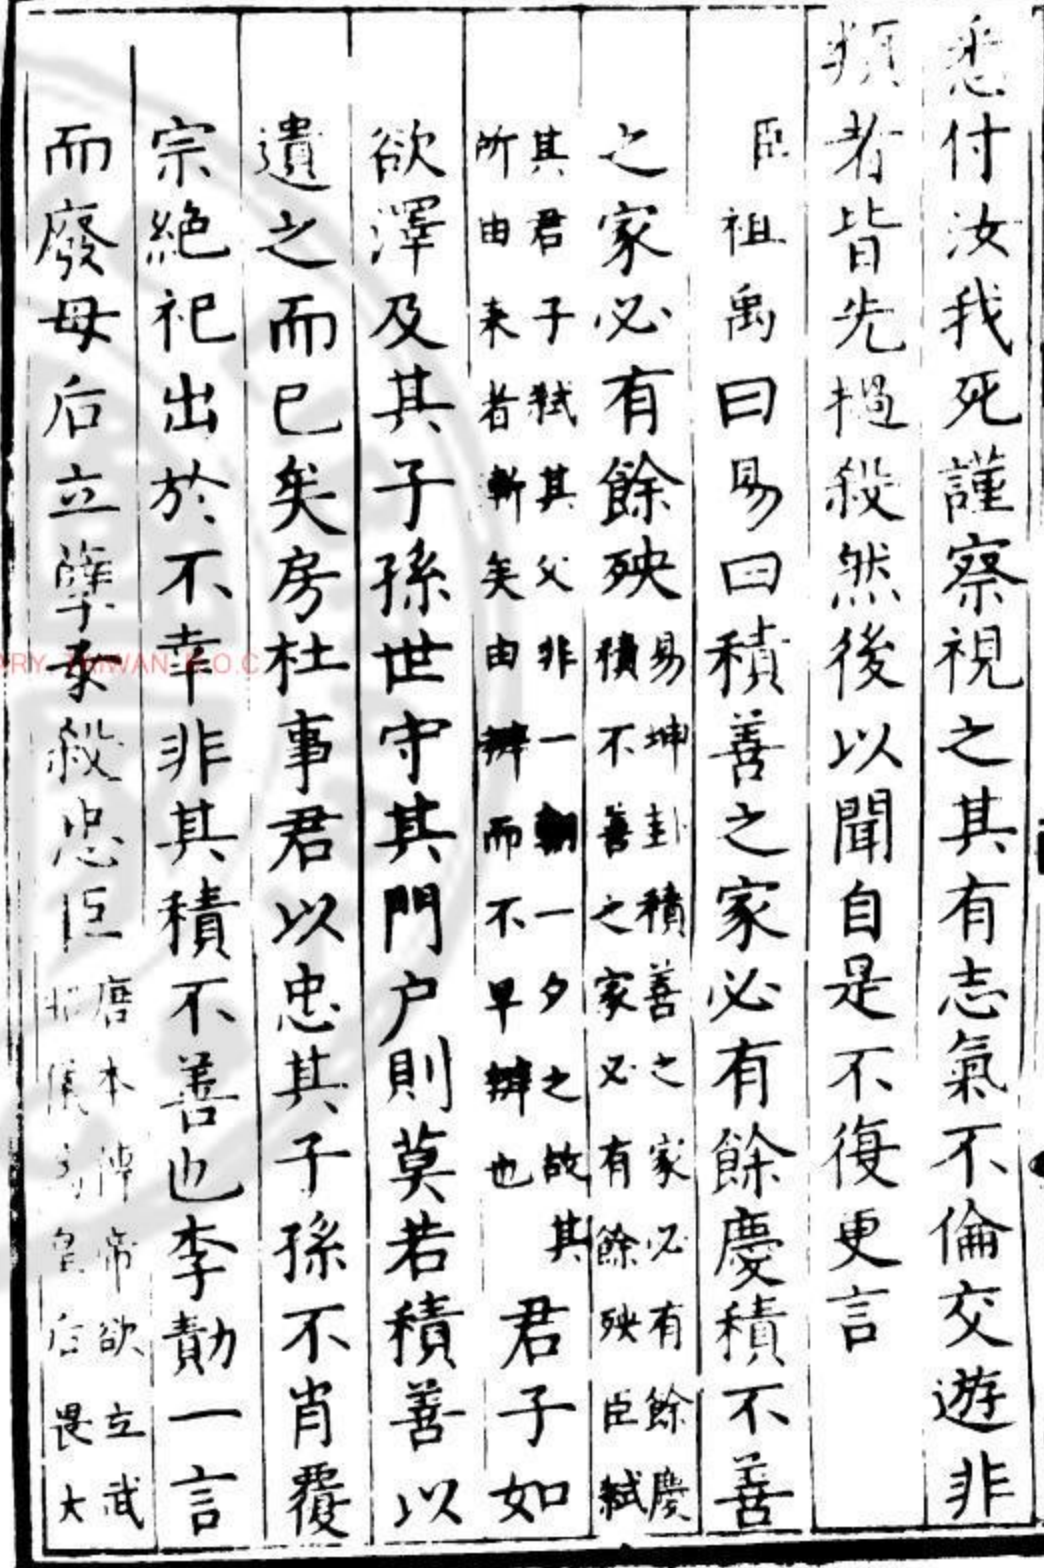 悉付汝我死謹察視之其有志氣不倫交遊非
類者皆先撾殺然後以聞自是不復更言
臣祖禹曰易曰積善之家必有餘慶積不善
之家必有餘殃
易坤卦積善之家必有餘慶
積不善之家必有餘殃臣弒
其君子弒其父非一朝一夕之故其
所由来者漸矣由辨而不早辨也
君子如
欲澤及其子孫世守其門户則莫若積善以
遺之而已矣房杜事君以忠其子孫不肖覆
宗絶祀出於不幸非其積不善也李勣一言
而廢母后立孽承殺忠臣
唐本傳帝欲立武
皇后畏大
RY, TAIWAN R.O.C